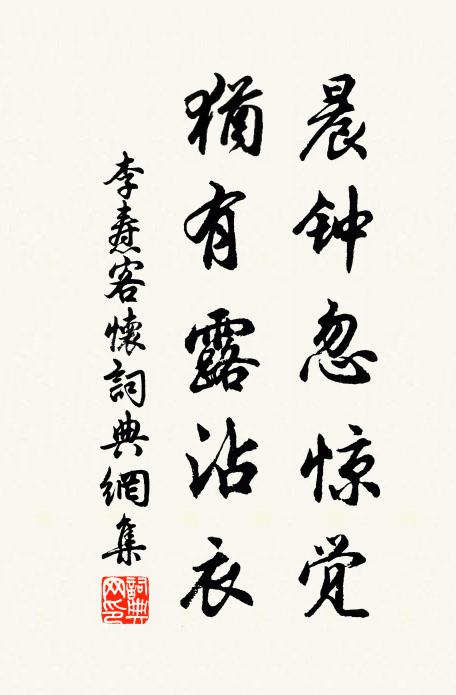 晨钟忽惊觉
猶有露沾衣
李燾客懷詞典網集
詞典網印